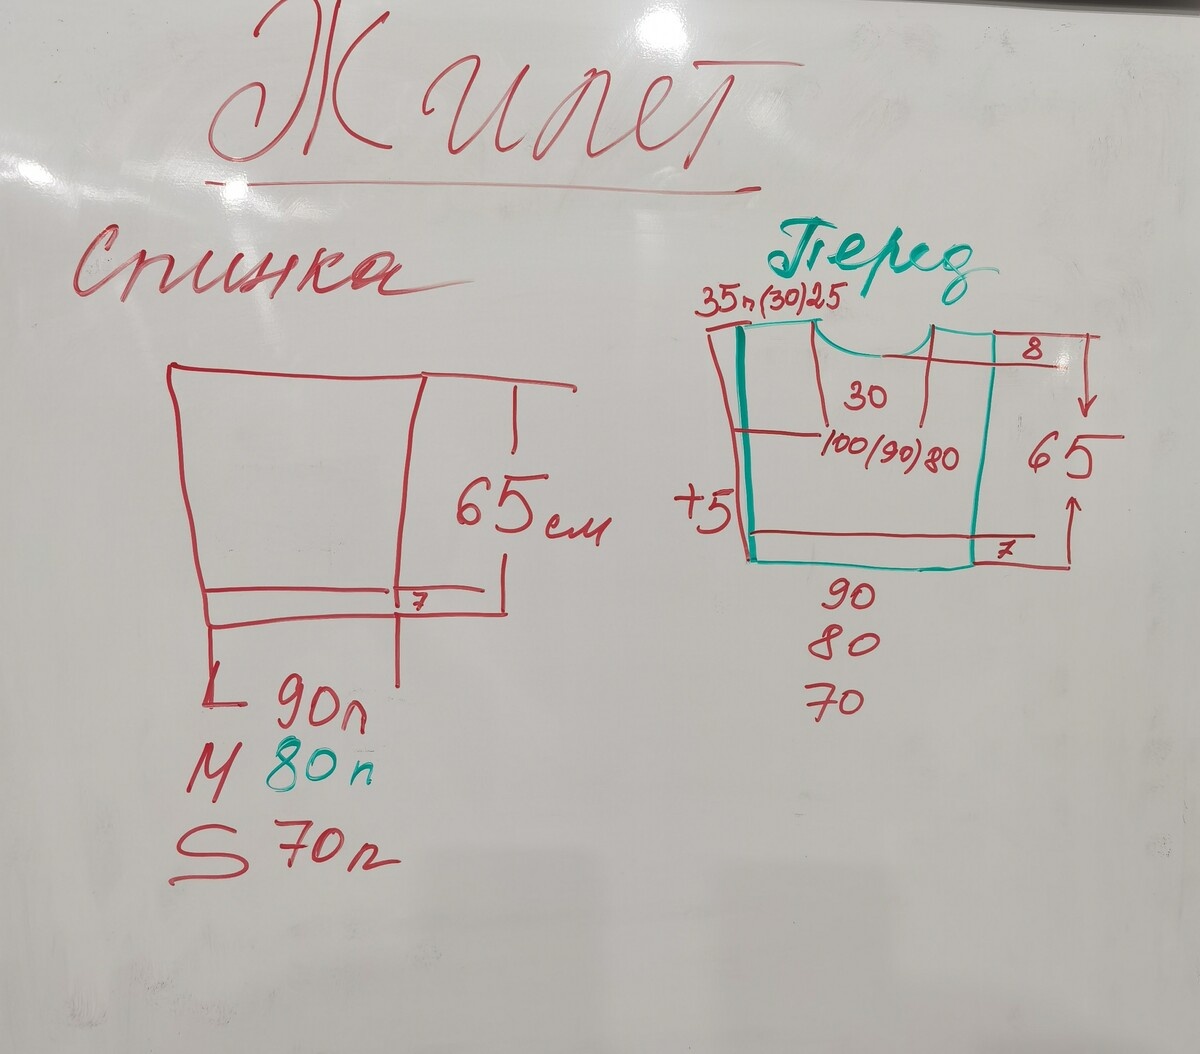 Жилет
Спинка
65см
7
L 90п
M 80п
S 70п
Перед
35п(30)25
8
30
100(90)80
65
+5
7
90
80
70